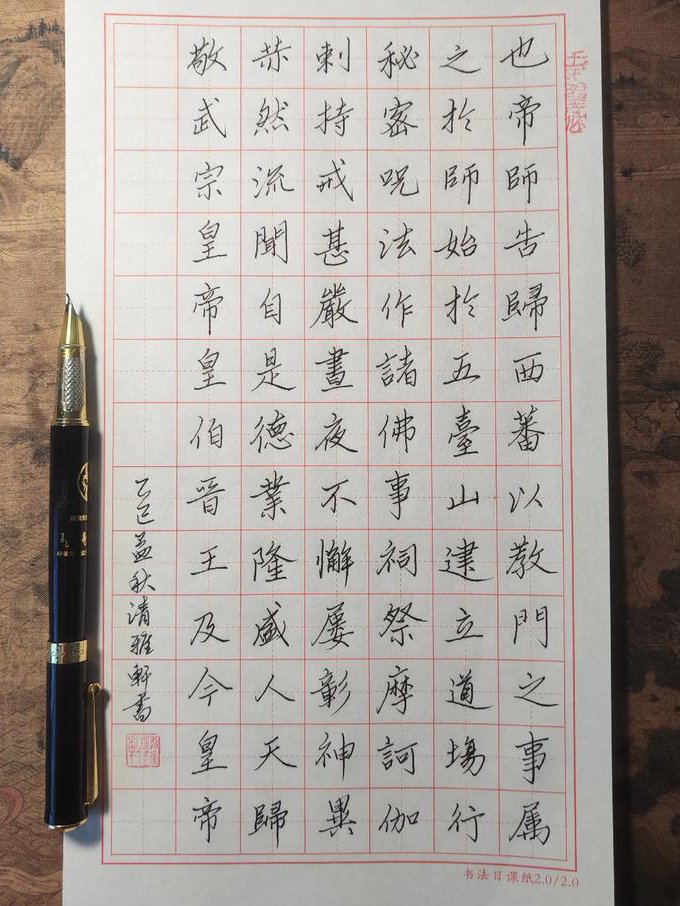 也帝師告歸西蕃以教門之事属
之於師始於五臺山建立道場行
秘密咒法作諸佛事祠祭摩訶伽
剌持戒甚嚴晝夜不懈屢彰神異
赫然流聞自是德業隆盛人天歸
敬武宗皇帝皇伯晋王及今皇帝
乙巳孟秋清雅軒書
书法日课纸2.0/2.0